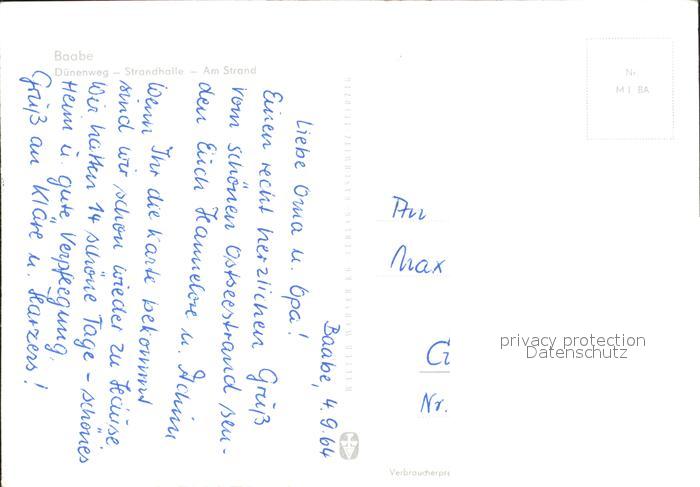 Baabe
Dünenweg – Strandhalle – Am Strand
Baabe, 4.9.64
Liebe Oma u. Opa!
Einen recht herzlichen Gruß
vom schönen Ostseestrand sen-
den Euch Hannelore u. Achim
Wenn Ihr die Karte bekommt
sind wir schon wieder zu Hause
Wir hatten 14 schöne Tage – schönes
Heim u. gute Verpflegung.
Gruß an Kläre u. Harzers!
Nr.
M I BA
An
Max
Nr.
privacy protection
Datenschutz
Verbraucherpre